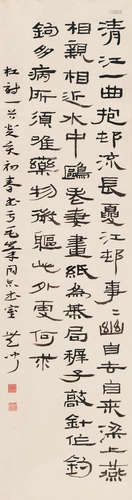 清江一曲抱邨流長夏江邨事〻幽自去自來梁上燕
相親相近水中鷗老妻畫紙為棊局稚子敲針作釣
鉤多病所須唯藥物微軀此外更何求
杜詩一首癸亥初春書于